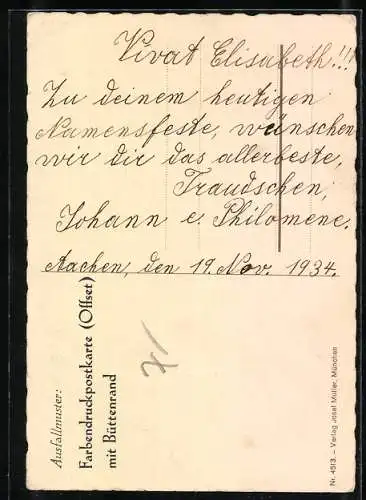 Vivat Elisabeth!!!
Zu deinem heutigen
Namensfeste, wünschen
wir dir das allerbeste,
Traudschen,
Johann e. Philomene.
Aachen, den 19. Nov. 1934.
Ausfallmuster:
Farbendruckpostkarte (Offset)
mit Büttenrand
Nr. 4513. – Verlag Josef Müller, München